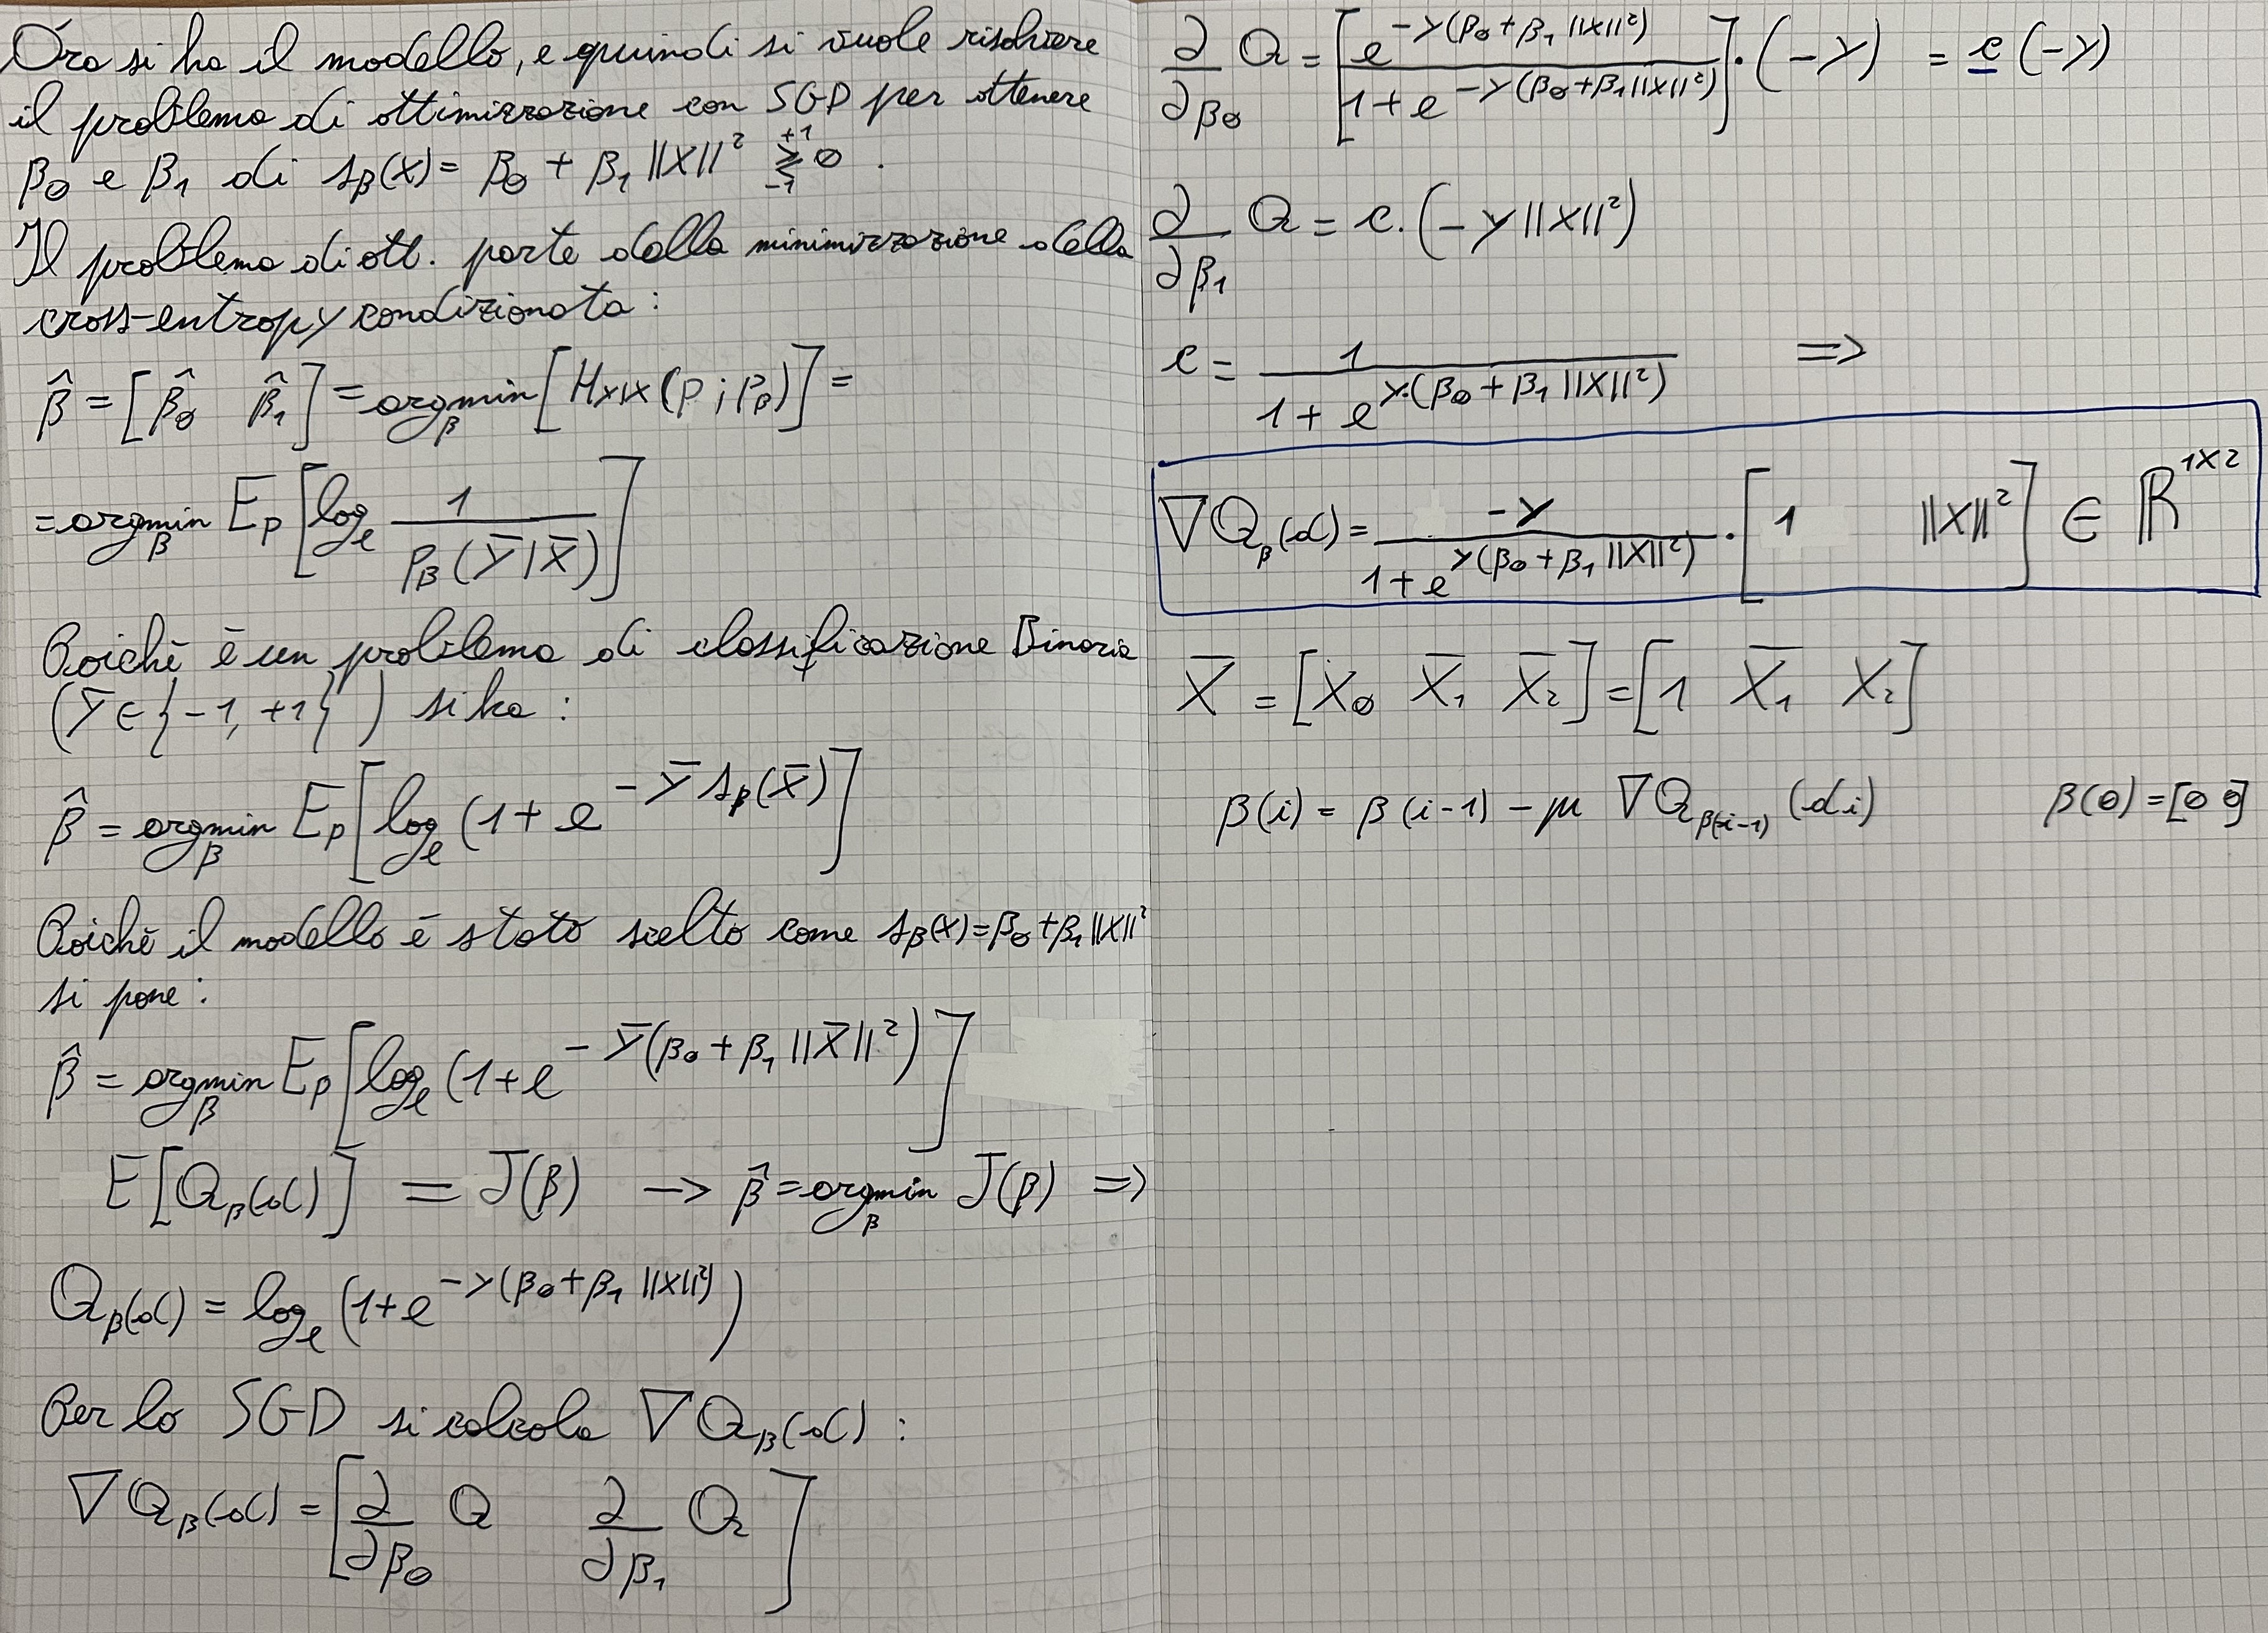 Ora si ha il modello, e quindi si vuole risolvere
il problema di ottimizzazione con SGD per ottenere
β₀ e β₁ di s_β(x) = β₀ + β₁ ||x||² ≷^{+1}_{-1} 0 .
Il problema di ott. parte dalla minimizzazione della
cross-entropy condizionata:
β̂ = [β̂₀ β̂₁] = argmin_β [H_{Y|X}(p ; p_β)] =
= argmin_β E_p [log_e 1 / p_β(Y̅|X̅)]
Poichè è un problema di classificazione Binaria
(Y̅ ∈ {-1, +1}) si ha :
β̂ = argmin_β E_p [log_e (1 + e^{-Y̅ s_β(X̅)}]
Poichè il modello è stato scelto come s_β(x) = β₀ + β₁ ||x||²
si pone:
β̂ = argmin_β E_p [log_e (1 + e^{-Y̅(β₀ + β₁ ||X̅||²)}]
E[Q_β(d)] = J(β) → β̂ = argmin_β J(β) ⇒
Q_β(d) = log_e (1 + e^{-y(β₀ + β₁ ||x||²)})
Per lo SGD si calcola ∇Q_β(d) :
∇Q_β(d) = [∂/∂β₀ Q ∂/∂β₁ Q]
∂/∂β₀ Q = [e^{-y(β₀ + β₁ ||x||²)} / 1 + e^{-y(β₀ + β₁ ||x||²)}] · (-y) = c (-y)
∂/∂β₁ Q = c · (-y ||x||²)
c = 1 / 1 + e^{y·(β₀ + β₁ ||x||²)} ⇒
∇Q_β(d) = -y / 1 + e^{y(β₀ + β₁ ||x||²)} · [1 ||x||²] ∈ ℝ^{1x2}
X̅ = [X₀ X̅₁ X̅₂] = [1 X̅₁ X̅₂]
β(i) = β(i-1) - μ ∇Q_{β(i-1)} (d_i) β(0) = [0 0]